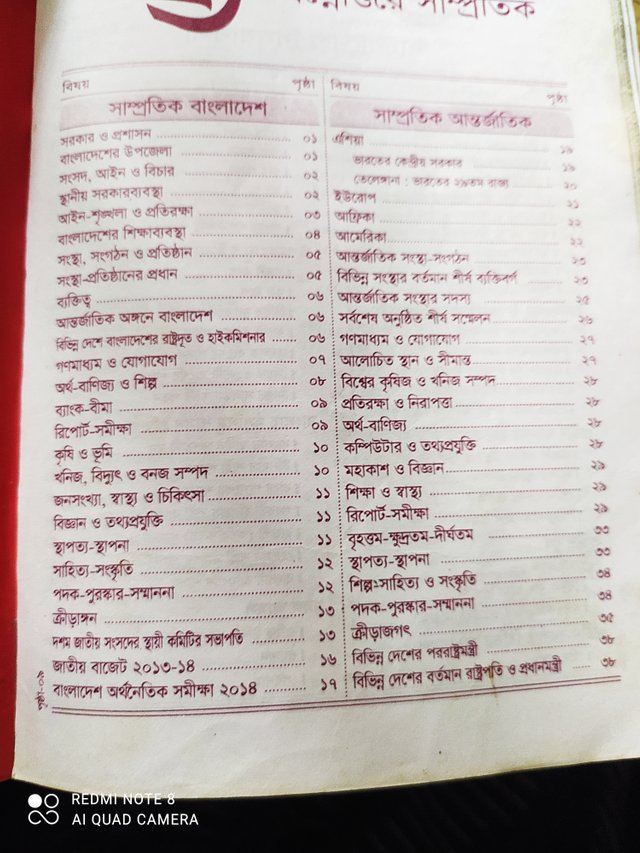 সাম্প্রতিক
বিষয় পৃষ্ঠা
সাম্প্রতিক বাংলাদেশ
সরকার ও প্রশাসন ০১
বাংলাদেশের উপজেলা ০১
সংসদ, আইন ও বিচার ০২
স্থানীয় সরকারব্যবস্থা ০২
আইন-শৃঙ্খলা ও প্রতিরক্ষা ০৩
বাংলাদেশের শিক্ষাব্যবস্থা ০৪
সংস্থা, সংগঠন ও প্রতিষ্ঠান ০৫
সংস্থা-প্রতিষ্ঠানের প্রধান ০৫
ব্যক্তিত্ব ০৬
আন্তর্জাতিক অঙ্গনে বাংলাদেশ ০৬
বিভিন্ন দেশে বাংলাদেশের রাষ্ট্রদূত ও হাইকমিশনার ০৬
গণমাধ্যম ও যোগাযোগ ০৭
অর্থ-বাণিজ্য ও শিল্প ০৮
ব্যাংক-বীমা ০৯
রিপোর্ট-সমীক্ষা ০৯
কৃষি ও ভূমি ১০
খনিজ, বিদ্যুৎ ও বনজ সম্পদ ১০
জনসংখ্যা, স্বাস্থ্য ও চিকিৎসা ১১
বিজ্ঞান ও তথ্যপ্রযুক্তি ১১
স্থাপত্য-স্থাপনা ১১
সাহিত্য-সংস্কৃতি ১২
পদক-পুরস্কার-সম্মাননা ১২
ক্রীড়াঙ্গন ১৩
দশম জাতীয় সংসদের স্থায়ী কমিটির সভাপতি ১৩
জাতীয় বাজেট ২০১৩-১৪ ১৬
বাংলাদেশ অর্থনৈতিক সমীক্ষা ২০১৪ ১৭
বিষয় পৃষ্ঠা
সাম্প্রতিক আন্তর্জাতিক
এশিয়া ১৯
ভারতের কেন্দ্রীয় সরকার ১৯
তেলেঙ্গানা : ভারতের ২৯তম রাজ্য ২০
ইউরোপ ২১
আফ্রিকা ২২
আমেরিকা ২২
আন্তর্জাতিক সংস্থা-সংগঠন ২৩
বিভিন্ন সংস্থার বর্তমান শীর্ষ ব্যক্তিবর্গ ২৩
আন্তর্জাতিক সংস্থার সদস্য ২৫
সর্বশেষ অনুষ্ঠিত শীর্ষ সম্মেলন ২৬
গণমাধ্যম ও যোগাযোগ ২৭
আলোচিত স্থান ও সীমান্ত ২৭
বিশ্বের কৃষিজ ও খনিজ সম্পদ ২৮
প্রতিরক্ষা ও নিরাপত্তা ২৮
অর্থ-বাণিজ্য ২৮
কম্পিউটার ও তথ্যপ্রযুক্তি ২৮
মহাকাশ ও বিজ্ঞান ২৯
শিক্ষা ও স্বাস্থ্য ২৯
রিপোর্ট-সমীক্ষা ২৯
বৃহত্তম-ক্ষুদ্রতম-দীর্ঘতম ৩৩
স্থাপত্য-স্থাপনা ৩৩
শিল্প-সাহিত্য ও সংস্কৃতি ৩৪
পদক-পুরস্কার-সম্মাননা ৩৪
ক্রীড়াজগৎ ৩৫
বিভিন্ন দেশের পররাষ্ট্রমন্ত্রী ৩৮
বিভিন্ন দেশের বর্তমান রাষ্ট্রপতি ও প্রধানমন্ত্রী ৩৮
REDMI NOTE 8
AI QUAD CAMERA